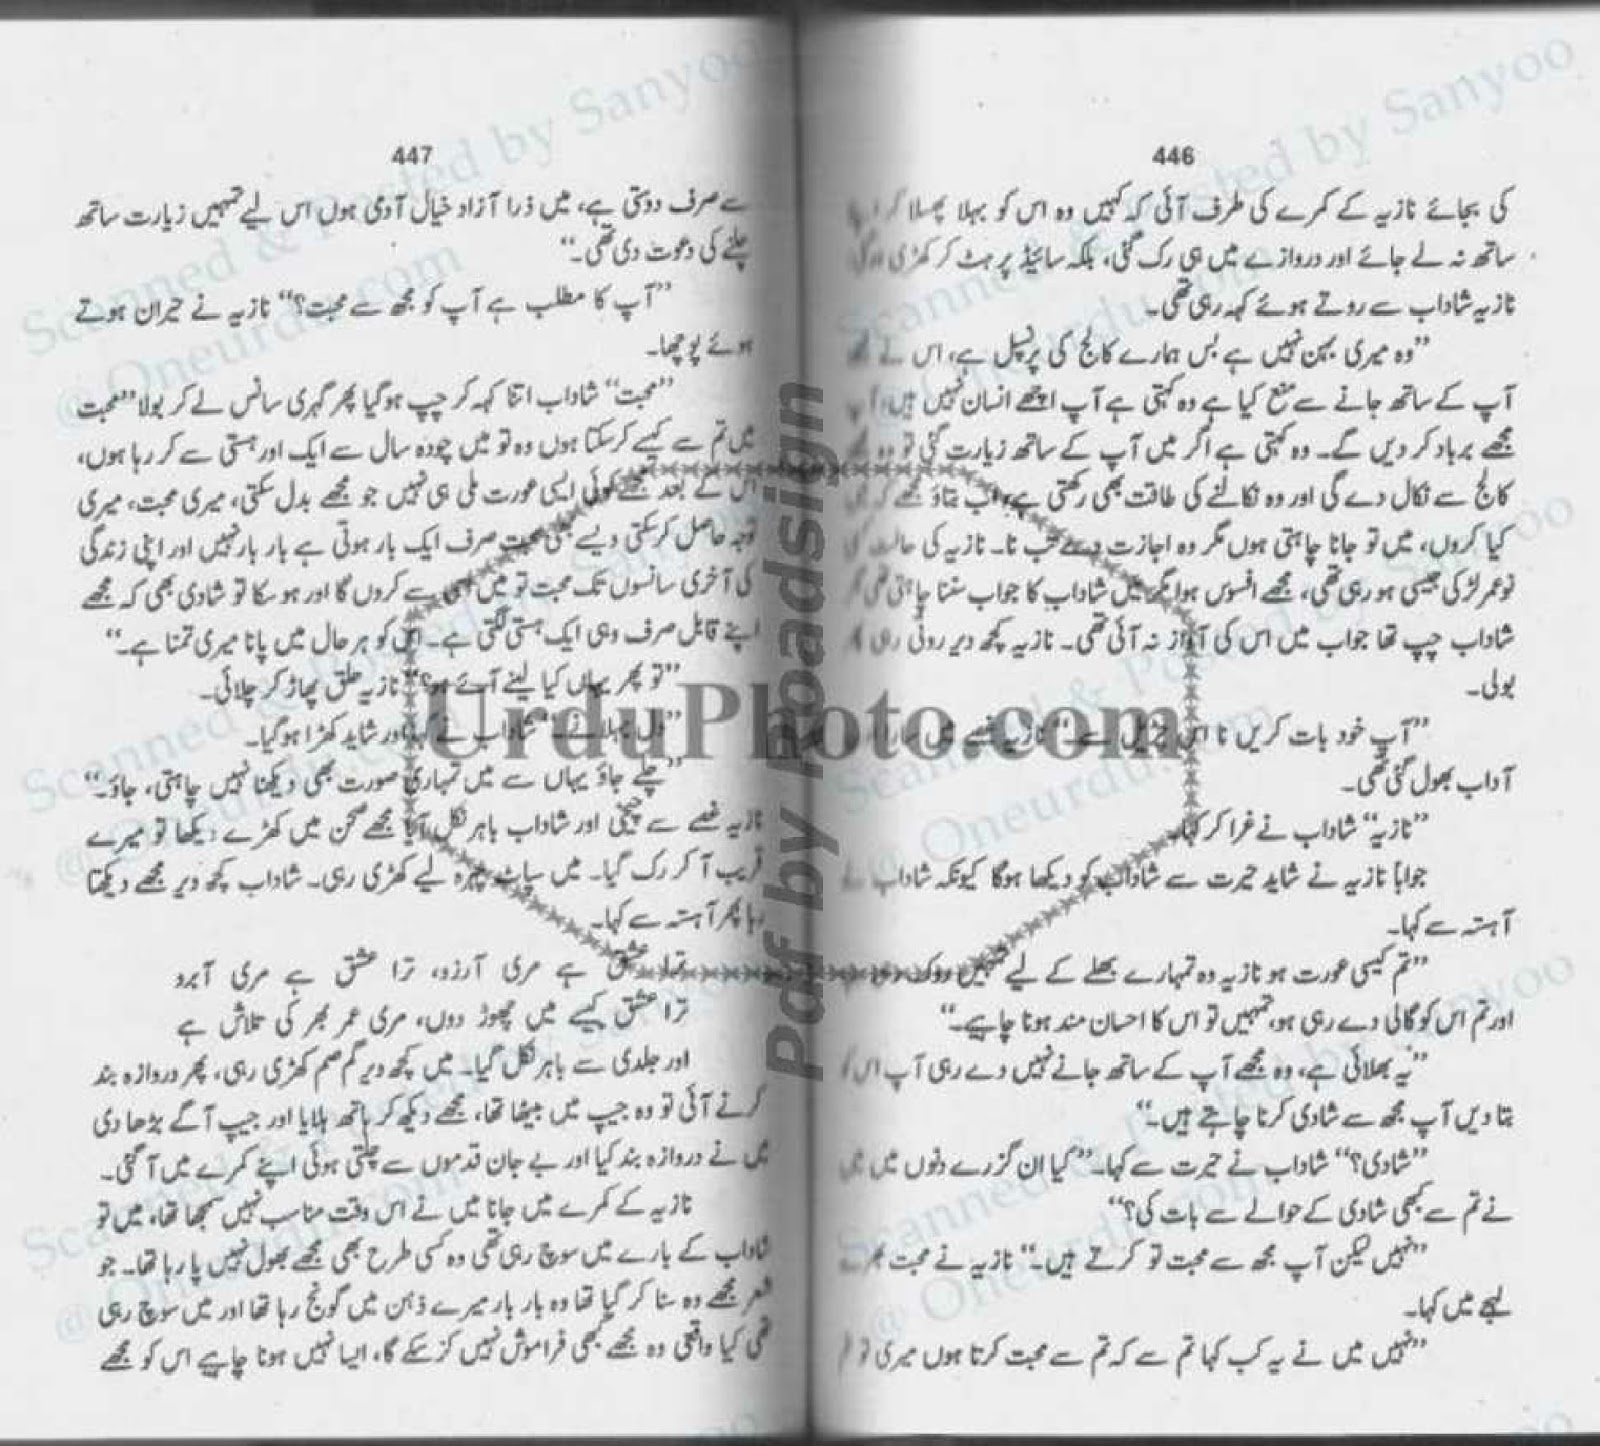 446
کی بجائے نازیہ کے کمرے کی طرف آئی کہ کہیں وہ اس کو بہلا پھسلا کر
ساتھ نہ لے جائے اور دروازے میں ہی رک گئی، بلکہ سائیڈ پر ہٹ کر کھڑی ہو گئی
نازیہ شاداب سے روتے ہوئے کہہ رہی تھی۔
”وہ میری بہن نہیں ہے بس ہمارے کالج کی پرنسپل ہے، اس نے
آپ کے ساتھ جانے سے منع کیا ہے وہ کہتی ہے آپ اچھے انسان نہیں ہیں،
مجھے برباد کر دیں گے۔ وہ کہتی ہے اگر میں آپ کے ساتھ زیارت گئی تو وہ
کالج سے نکال دے گی اور وہ نکالنے کی طاقت بھی رکھتی ہے، اب بتاؤ مجھے کہ
کیا کروں، میں تو جانا چاہتی ہوں مگر وہ اجازت دے تب نا۔ نازیہ کی حالت
نو عمر لڑکی جیسی ہو رہی تھی، مجھے افسوس ہوا مگر میں شاداب کا جواب سننا چاہتی تھی
شاداب چپ تھا جواب میں اس کی آواز نہ آئی تھی۔ نازیہ کچھ دیر روتی رہی
بولی۔
”آپ خود بات کریں نا اس چڑیل سے“ نازیہ غصے میں سارے
آداب بھول گئی تھی۔
”نازیہ“ شاداب نے غرا کر کہا۔
جواباً نازیہ نے شاید حیرت سے شاداب کو دیکھا ہوگا کیونکہ شاداب نے
آہستہ سے کہا۔
”تم کیسی عورت ہو نازیہ وہ تمہارے بھلے کے لیے تمہیں روک رہی
اور تم اس کو گالی دے رہی ہو، تمہیں تو اس کا احسان مند ہونا چاہیے۔“
”یہ بھلائی ہے، وہ مجھے آپ کے ساتھ جانے نہیں دے رہی آپ اس کو
بتا دیں آپ مجھ سے شادی کرنا چاہتے ہیں۔“
”شادی؟“ شاداب نے حیرت سے کہا۔ ”کیا ان گزرے دنوں میں میں
نے تم سے کبھی شادی کے حوالے سے بات کی؟“
”نہیں لیکن آپ مجھ سے محبت تو کرتے ہیں۔“ نازیہ نے محبت بھرے
لہجے میں کہا۔
”نہیں میں نے یہ کب کہا تم سے کہ تم سے محبت کرتا ہوں میری تو
447
سے صرف دوستی ہے، میں ذرا آزاد خیال آدمی ہوں اس لیے تمہیں زیارت ساتھ
چلنے کی دعوت دی تھی۔“
”آپ کا مطلب ہے آپ کو مجھ سے محبت؟“ نازیہ نے حیران ہوتے
ہوئے پوچھا۔
”محبت“ شاداب اتنا کہہ کر چپ ہو گیا پھر گہری سانس لے کر بولا ”محبت
میں تم سے کیسے کر سکتا ہوں وہ تو میں چودہ سال سے ایک اور ہستی سے کر رہا ہوں،
اس کے بعد مجھے کوئی ایسی عورت ملی ہی نہیں جو مجھے بدل سکتی، میری محبت، میری
توجہ حاصل کر سکتی ویسے بھی محبت صرف ایک بار ہوتی ہے بار بار نہیں اور اپنی زندگی
کی آخری سانسوں تک محبت تو میں اسی سے کروں گا اور ہو سکا تو شادی بھی کہ مجھے
اپنے قابل صرف وہی ایک ہستی لگتی ہے۔ اس کو ہر حال میں پانا میری تمنا ہے۔“
”تو پھر یہاں کیا لینے آئے ہو؟“ نازیہ حلق پھاڑ کر چلائی۔
”دل بہلانے“ شاداب نے کہا اور شاید کھڑا ہو گیا۔
”چلے جاؤ یہاں سے میں تمہاری صورت بھی دیکھنا نہیں چاہتی، جاؤ۔“
نازیہ غصے سے چیخی اور شاداب باہر نکل آیا مجھے صحن میں کھڑے دیکھا تو میرے
قریب آ کر رک گیا۔ میں سپاٹ چہرہ لیے کھڑی رہی۔ شاداب کچھ دیر مجھے دیکھتا
رہا پھر آہستہ سے کہا۔
ترا عشق ہے مری آرزو، ترا عشق ہے مری آبرو
ترا عشق کیسے میں چھوڑ دوں، مری عمر بھر کی تلاش ہے
اور جلدی سے باہر نکل گیا۔ میں کچھ دیر گم صم کھڑی رہی، پھر دروازہ بند
کرنے آئی تو وہ جیپ میں بیٹھا تھا، مجھے دیکھ کر ہاتھ ہلایا اور جیپ آگے بڑھا دی
میں نے دروازہ بند کیا اور بے جان قدموں سے چلتی ہوئی اپنے کمرے میں آ گئی۔
نازیہ کے کمرے میں جانا میں نے اس وقت مناسب نہیں سمجھا تھا، میں تو
شاداب کے بارے میں سوچ رہی تھی وہ کسی طرح بھی مجھے بھول نہیں پا رہا تھا۔ جو
شعر مجھے وہ سنا کر گیا تھا وہ بار بار میرے ذہن میں گونج رہا تھا اور میں سوچ رہی
تھی کیا واقعی وہ مجھے کبھی فراموش نہیں کر سکے گا، ایسا نہیں ہونا چاہیے اس کو مجھے
UrduPhoto.com
Pdf by Roadsign
Scanned & Posted by Sanyoo
@ Oneurdu.com